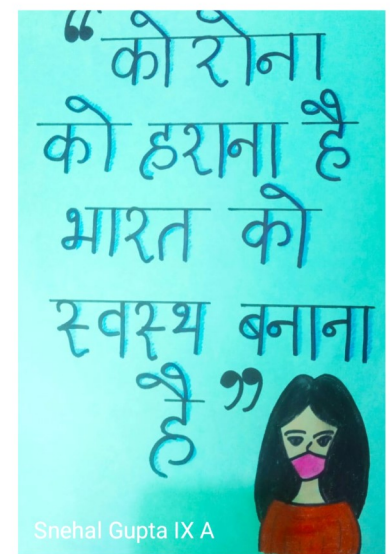 “कोरोना
को हराना है
भारत को
स्वस्थ बनाना
है”
Snehal Gupta IX A